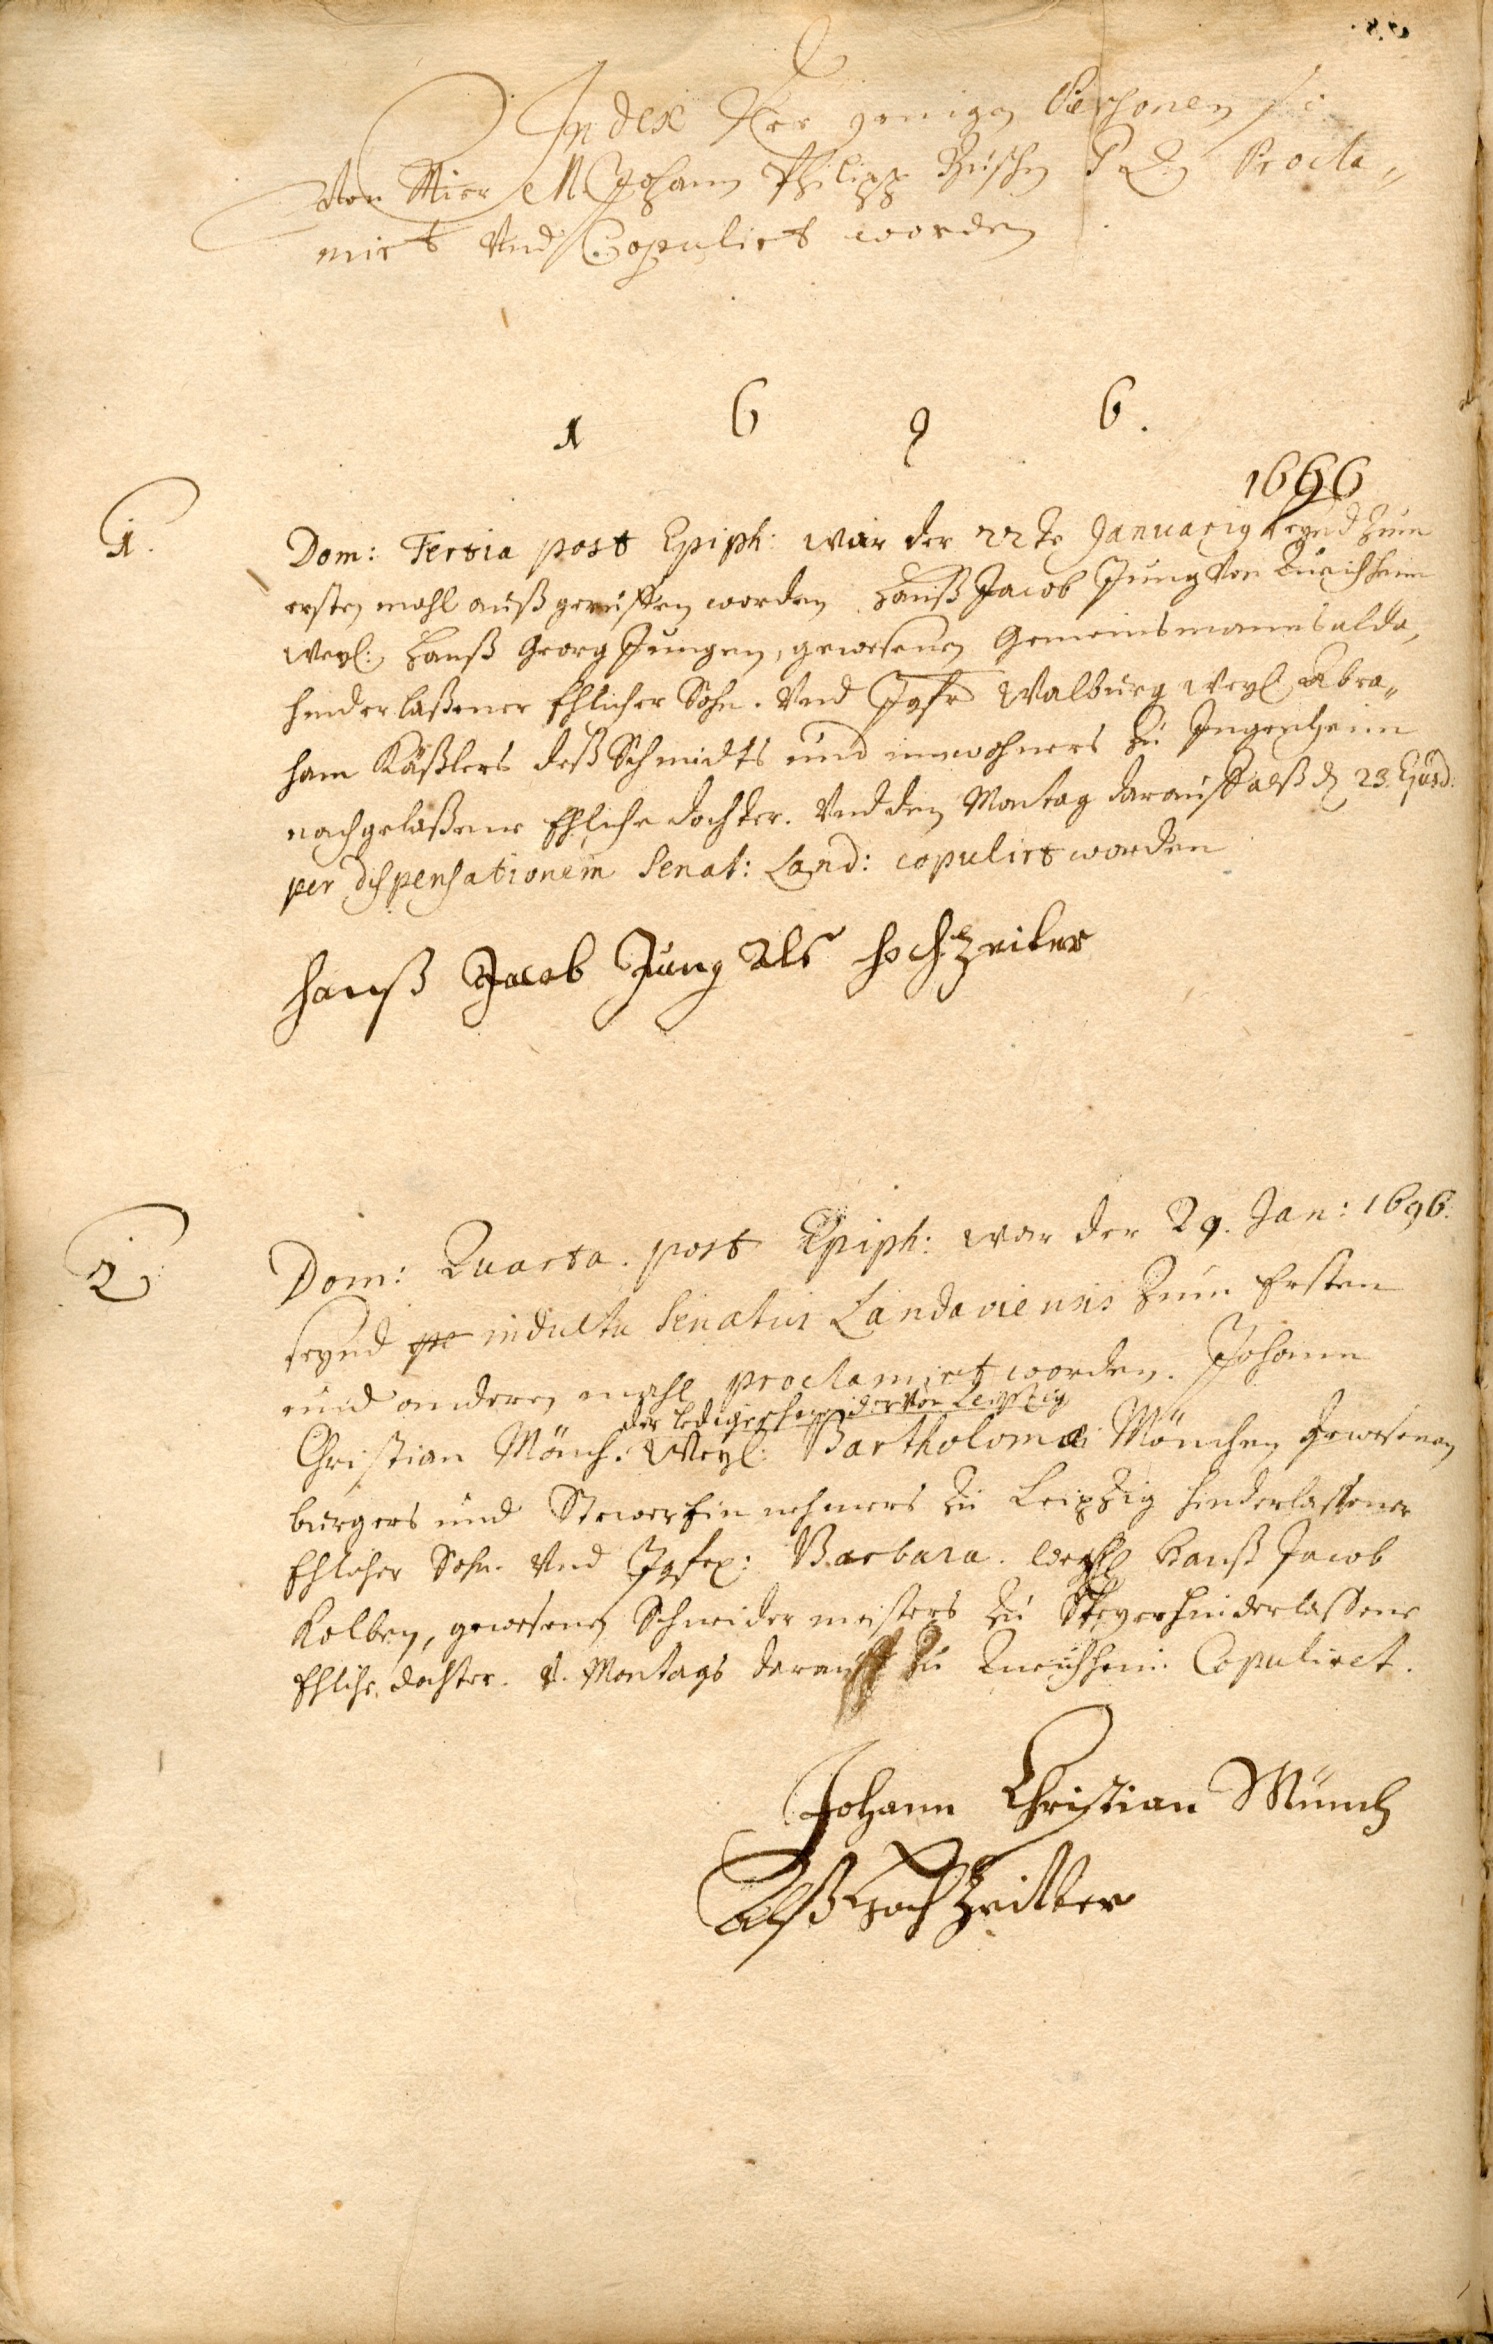 Index der jenigen Personen so
Von Mir M. Johann Philipp Procla„
mirt Vnd Copulirt worden
1 6 9 6.
1696
1. Dom: Tertia post Epiph: war der 22te Januarij seynd zum
ersten mahl außgeruffen worden Hanß Jacob Jung von
weyl: Hanß Georg Jungen, gewesenen Gemeinsmanns alda,
hinderlaßener Ehlicher Sohn. Vnd Jgfr Walburg weyl Abra„
ham Käßlers deß Schmidts und innwohners zu Ingenheim
nachgelaßene Ehliche dochter. Vnd den Montag darauff alß d 23. Ejusd:
per dispensationem Senat: Land: copulirt worden
Hanß Jacob Jung als hochzeiter
2. Dom: Quarta. post Epiph: war der 29. Jan: 1696.
seynd indultu Senatus Landaviensis zum Ersten
und anderen mahl proclamirt worden. Johann
der ledige schneider von Leipzig
Christian Mönch. Weyl: Bartholomæi Mönchen gewesenen
burgers und Stewereinnehmers zu Leipzig hinderlassener
Ehlicher Sohn. Vnd Jgfr: Barbara. weyl Hanß Jacob
Kolben, gewesenen Schneidermeisters zu Speyer hinderlassene
Ehliche dochter. d. Montags darauff zu Copulirt.
Johann Christian Münch
Alß Hochzeitter